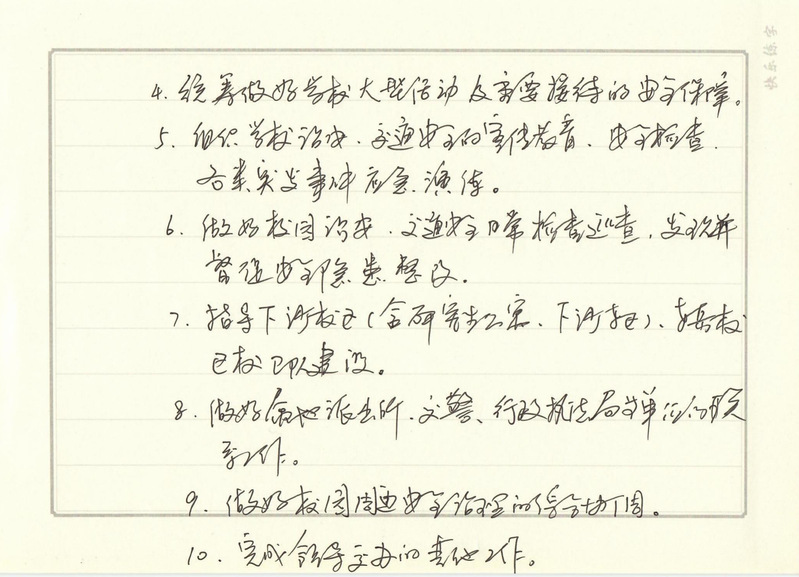 快乐练字
4. 统筹做好学校大型活动及重要接待的安全保障。
5. 组织学校治安、交通安全的宣传教育、安全检查、
各类突发事件应急演练。
6. 做好校园治安、交通安全日常检查巡查,发现并
督促安全隐患整改。
7. 指导下沙校区(含研究生公寓、下沙东区)、校
区校卫队建设。
8. 做好属地派出所、交警、行政执法局等单位的联
系工作。
9. 做好校园周边安全治理的综合协调。
10. 完成领导交办的其他工作。